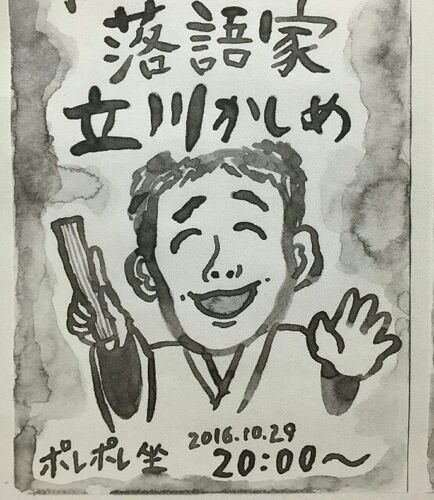 落語家
立川かしめ
2016.10.29
ポレポレ坐 20:00〜